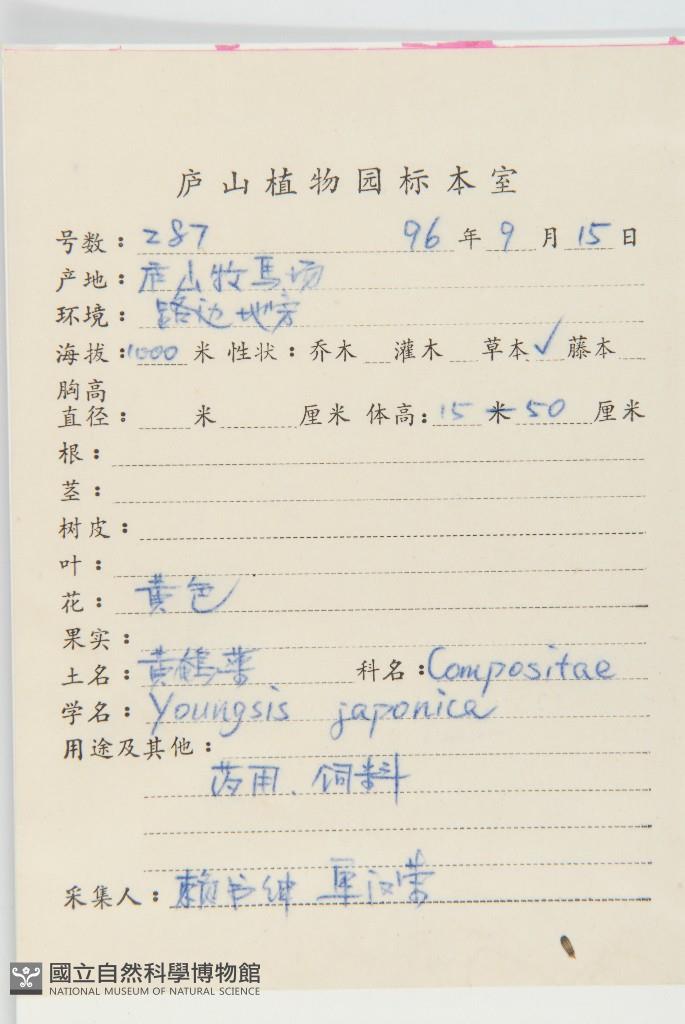 庐山植物园标本室
号数：287 96年9月15日
产地：庐山牧馬场
环境：路边地旁
海拔：1000米 性状：乔木 灌木 草本✓ 藤本
胸高
直径： 米 厘米 体高：15米50厘米
根：
茎：
树皮：
叶：
花：黄色
果实：
土名：黄鹌菜 科名：Compositae
学名：Youngsis japonica
用途及其他：
药用、饲料
采集人：赖书绅
國立自然科學博物館
NATIONAL MUSEUM OF NATURAL SCIENCE